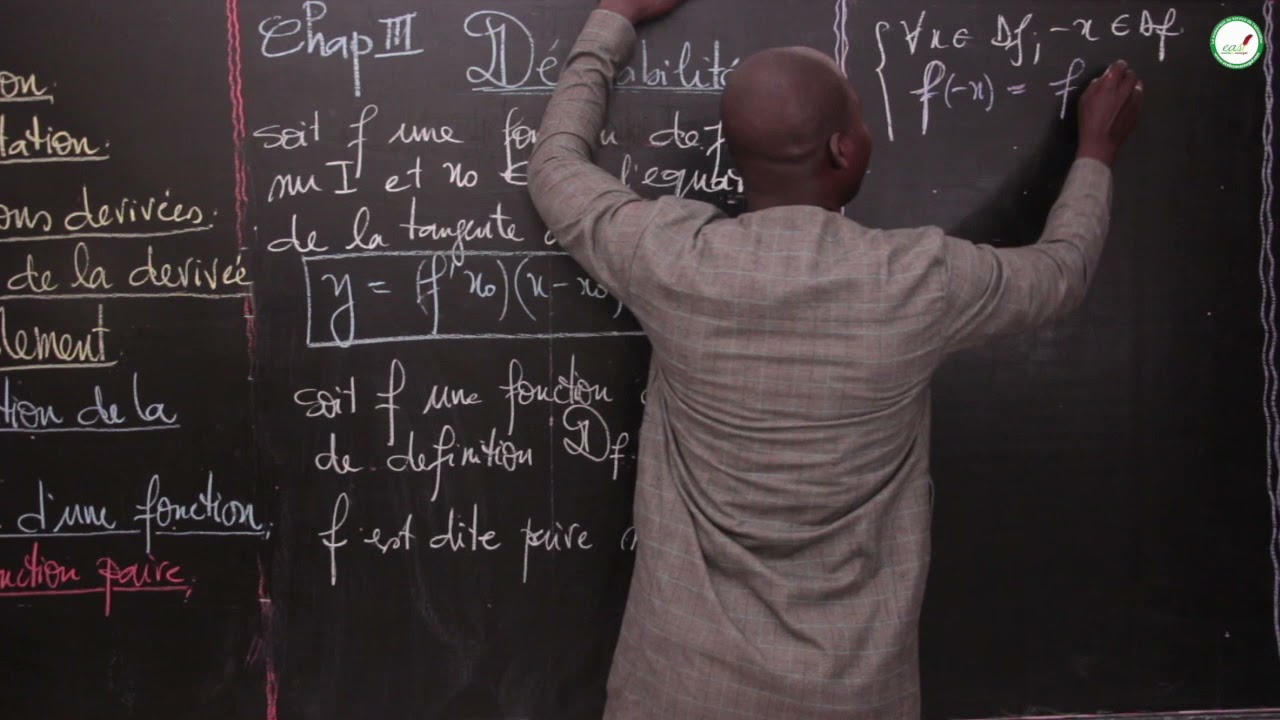 on.
tation.
ons derivées.
de la derivée
lement
tion de la
d'une fonction.
nction paire.
Chap III
soit f une
sur I et x₀ l'equa
de la tangente
y = (f' x₀)(x - x₀)
soit f une fonction
de definition Df.
f est dite paire
∀x ∈ Df; -x ∈ Df
f(-x) = f
eas!